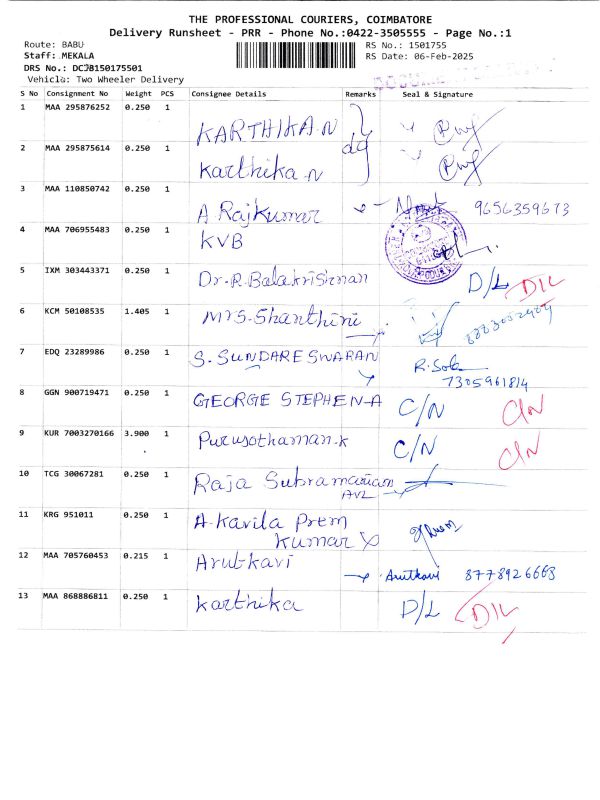 THE PROFESSIONAL COURIERS, COIMBATORE
Delivery Runsheet - PRR - Phone No.:0422-3505555 - Page No.:1
Route: BABU RS No.: 1501755
Staff: MEKALA RS Date: 06-Feb-2025
DRS No.: DCJB150175501
Vehicle: Two Wheeler Delivery
S No Consignment No Weight PCS Consignee Details Remarks Seal & Signature
1 MAA 295876252 0.250 1 KARTHIKA.N
2 MAA 295875614 0.250 1 Karthika.N
3 MAA 110850742 0.250 1 A Rajkumar 9656359673
4 MAA 706955483 0.250 1 KVB
5 IXM 303443371 0.250 1 Dr.R.Balakrishnan D/L D/L
6 KCM 50108535 1.405 1 Mrs.Shanthini
7 EDQ 23289986 0.250 1 S.SUNDARESWARAN
7305961814
8 GGN 900719471 0.250 1 GEORGE STEPHEN-A C/N C/N
9 KUR 7003270166 3.900 1 Purusothaman.k C/N C/N
10 TCG 30067281 0.250 1 Raja Subramanian
AVL
11 KRG 951011 0.250 1 A.Kavila Prem
Kumar
12 MAA 705760453 0.215 1 Arutkavi
Arutkavi 8778926663
13 MAA 868886811 0.250 1 Karthika D/L D/L